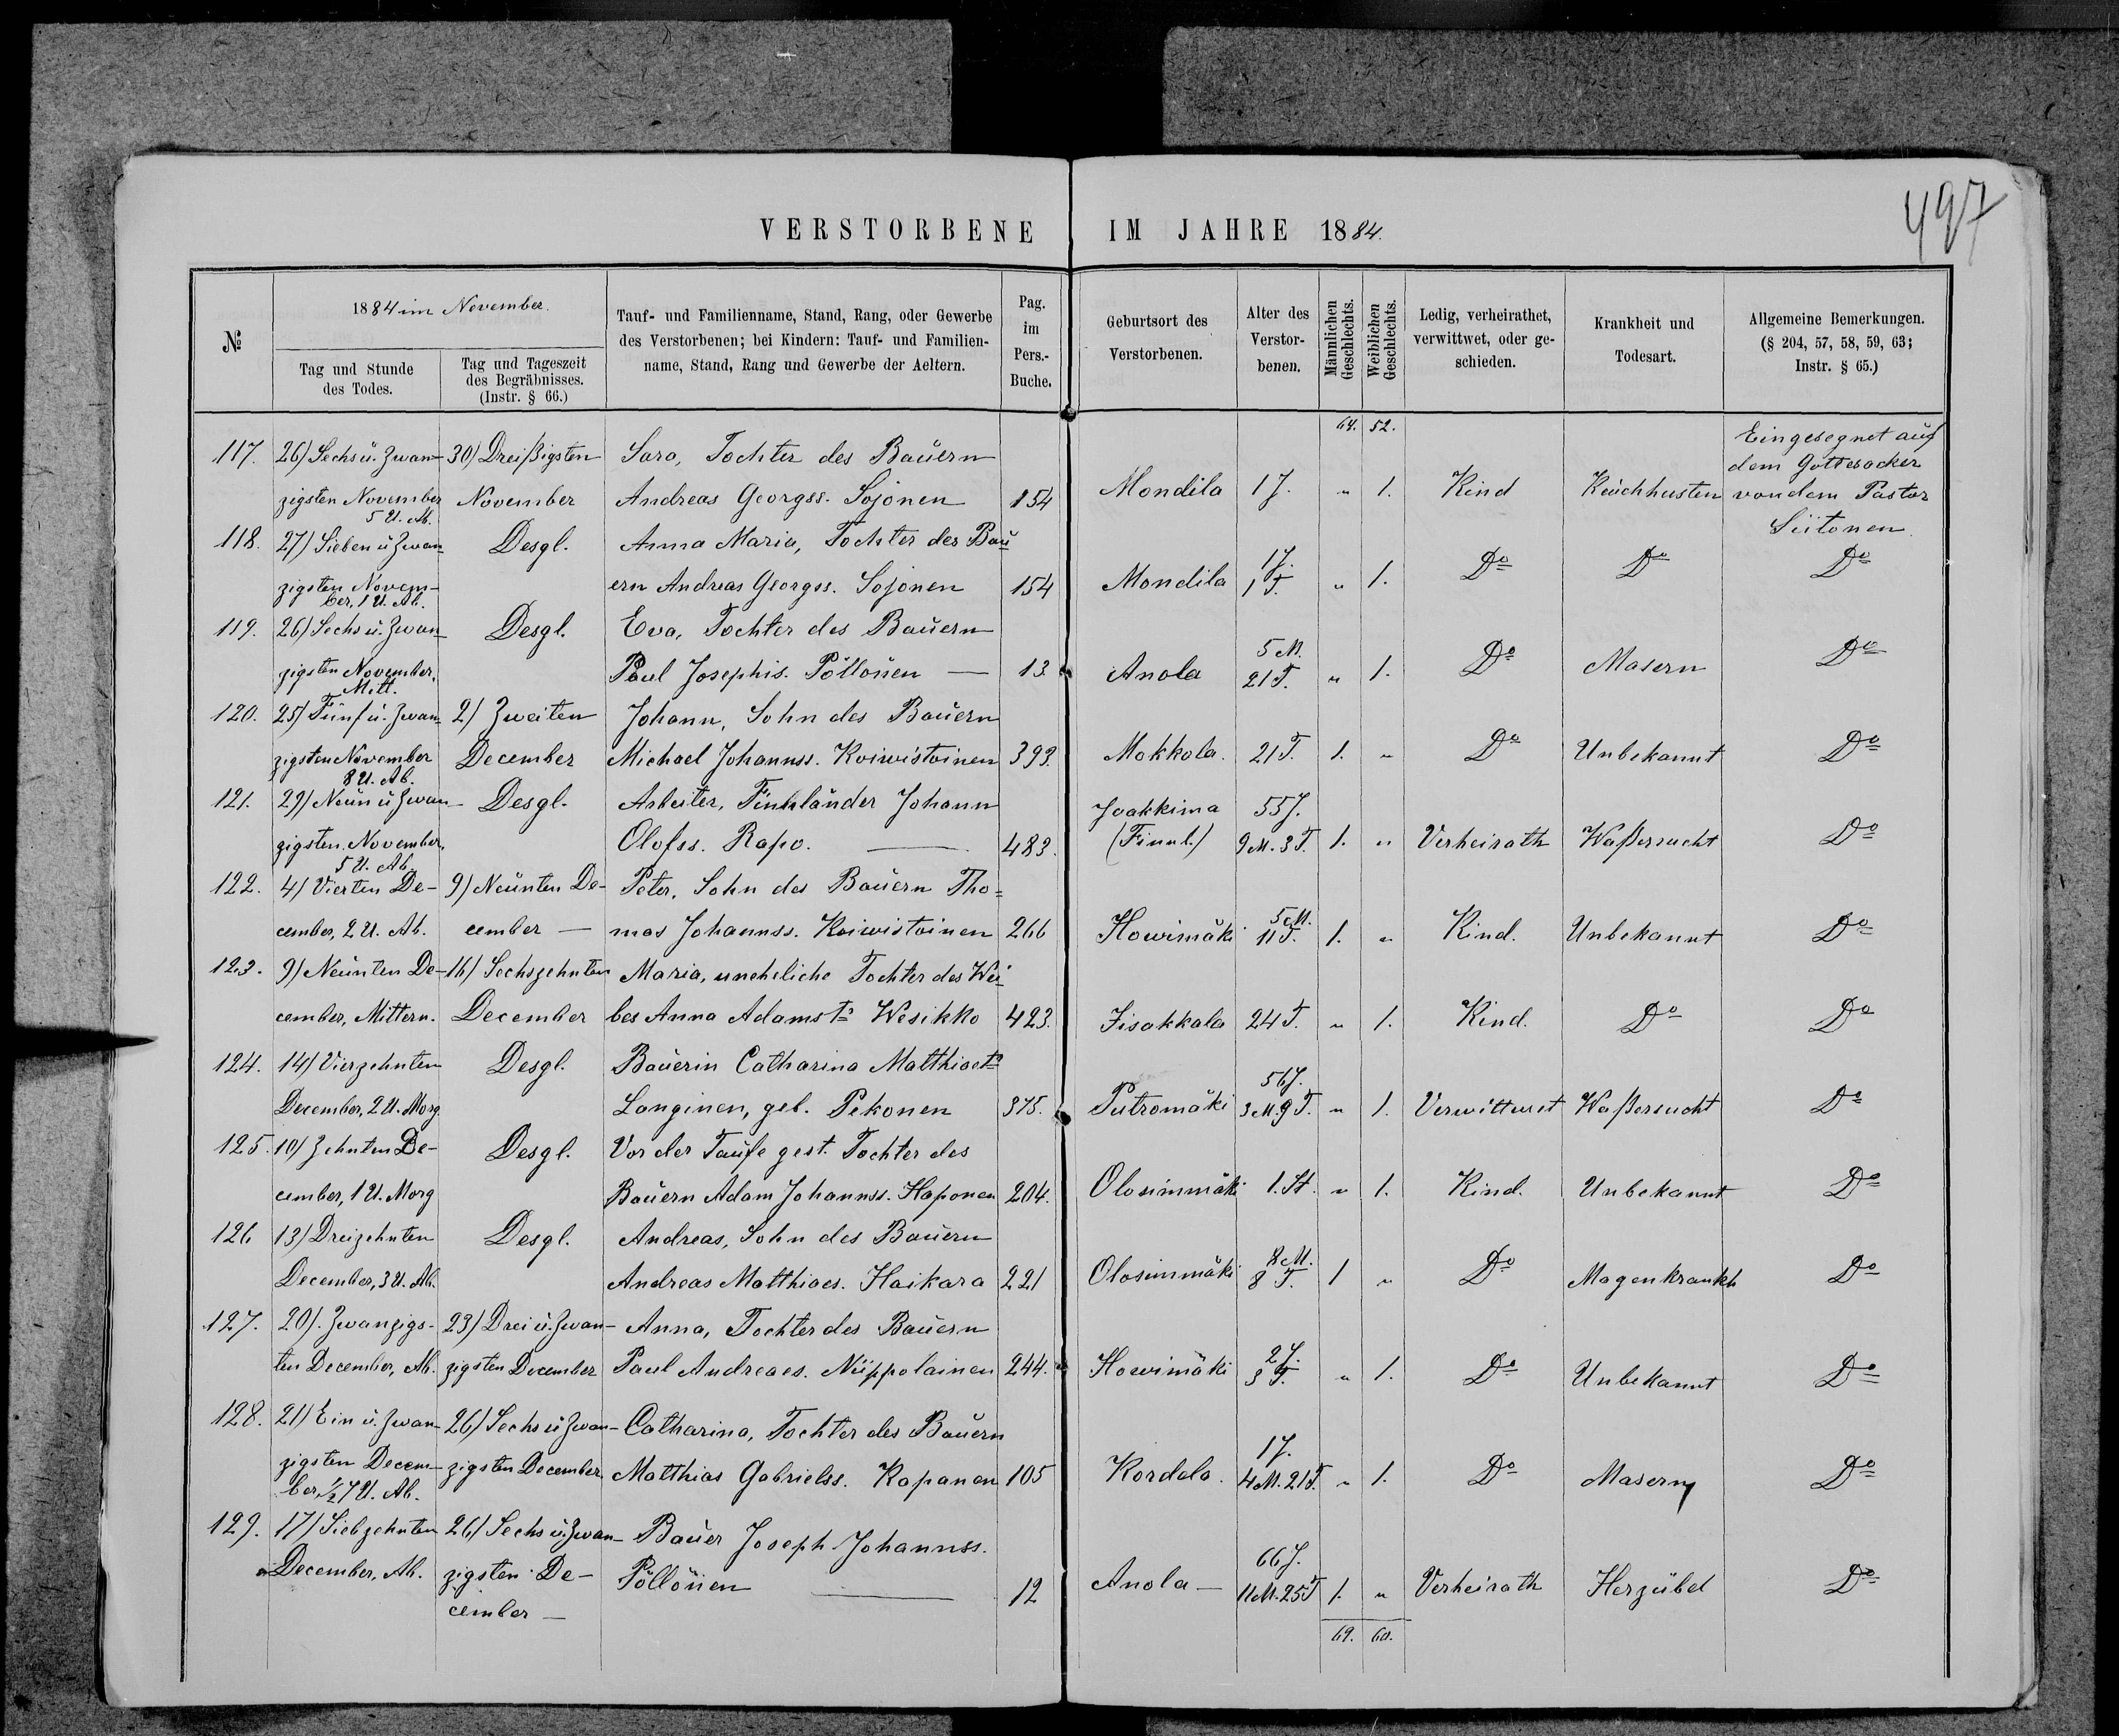 497
VERSTORBENE IM JAHRE 1884.
№
1884 im November.
Tag und Stunde
des Todes.
Tag und Tageszeit
des Begräbnisses.
(Instr. § 66.)
Tauf- und Familienname, Stand, Rang, oder Gewerbe
des Verstorbenen; bei Kindern: Tauf- und Familien-
name, Stand, Rang und Gewerbe der Aeltern.
Pag.
im
Pers.-
Buche.
Geburtsort des
Verstorbenen.
Alter des
Verstor-
benen.
Männlichen
Geschlechts.
Weiblichen
Geschlechts.
Ledig, verheirathet,
verwittwet, oder ge-
schieden.
Krankheit und
Todesart.
Allgemeine Bemerkungen.
(§ 204, 57, 58, 59, 63;
Instr. § 65.)
64. 52.
Eingesegnet auf
117. 26) Sechs u. Zwan- 30) Dreißigsten Sara, Tochter des Bauern dem Gottesacker
zigsten November November Andreas Georgss. Sojonen 154 Mondila 1 J. " 1. Kind Keuchhusten von dem Pastor
5 U. Ab. Siitonen.
118. 27) Sieben u Zwan- Desgl. Anna Maria, Tochter des Bau
1 J.
zigsten Novem- ern Andreas Georgss. Sojonen 154 Mondila 1 T. " 1. Do Do Do
ber, 1 U. Ab.
119. 26) Sechs u. Zwan- Desgl. Eva, Tochter des Bauern
5 M.
zigsten November, Paul Josephis. Pöllönen — 13 Anola 21 T. " 1. Do Masern Do
Mitt.
120. 25) Fünf u. Zwan- 2) Zweiten Johann, Sohn des Bauern
zigsten November December Michael Johannss. Koiwistoinen 393. Mokkola. 21 T. 1. " Do Unbekannt Do
8 U. Ab.
121. 29) Neun u Zwan- Desgl. Arbeiter, Finnländer Johann Joakkima 55 J.
zigsten November, Olofss. Rapo. — 483. (Finnl.) 9 M. 3 T. 1. " Verheirath Waßersucht Do
5 U. Ab.
122. 4) Vierten De- 9) Neunten De- Peter, Sohn des Bauern Tho=
5 M.
cember, 2 U. Ab. cember — mas Johannss. Koiwistoinen 266 Howimäki 11 T. 1. " Kind. Unbekannt Do
123. 9) Neunten De- 16) Sechszehnten Maria, uneheliche Tochter des Wei
cember, Mittern. December bes Anna Adamst. Wesikko 423. Iisakkala 24 T. " 1. Kind. Do Do
124. 14) Vierzehnten Desgl. Bauerin Catharina Matthiaet.
56 J.
December, 2 U. Morg Langinen, geb. Pekonen 375. Putromäki 3 M. 9 T. " 1. Verwittwet Waßersucht Do
125. 10) Zehnten De- Desgl. Vor der Taufe gest. Tochter des
cember, 1 U. Morg Bauern Adam Johannss. Haponen 204. Olosimmäki 1. St. " 1. Kind. Unbekannt Do
126 13) Dreizehnten Desgl. Andreas, Sohn des Bauern
8 M.
December, 3 U. Ab. Andreas Matthiaes. Haikara 221 Olosimmäki 8 T. 1 " Do Magenkrankh Do
127. 20). Zwanzigs- 23) Drei u. Zwan- Anna, Tochter des Bauern
2 J.
ten December, Ab. zigsten December Paul Andreaes. Nüppolainen 244. Howimäki 3 T. " 1. Do Unbekannt Do
128. 21) Ein u. Zwan- 26) Sechs u Zwan- Catharina, Tochter des Bauern
1 J.
zigsten Decem- zigsten December Matthias Gabrielss. Kapanen 105 Kordela. 4 M. 21 T. " 1. Do Masern Do
ber, ½ 7 U. Ab.
129. 17) Siebzehnten 26) Sechs u. Zwan- Bauer Joseph Johannss.
66 J.
December, Ab. zigsten De- Pöllönen — 12 Anola — 11 M. 25 T 1. " Verheirath Herzübel Do
cember —
69. 60.